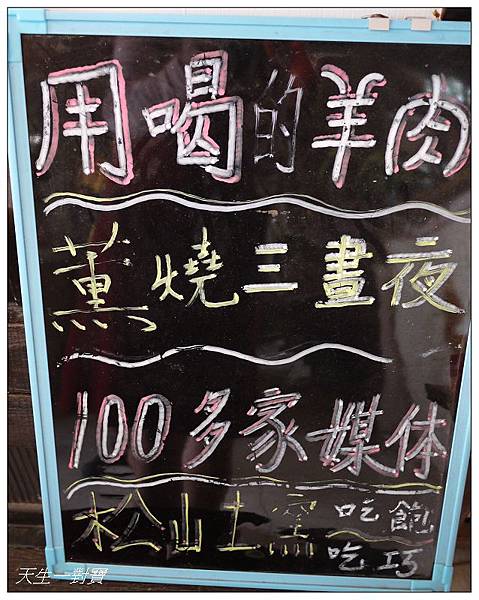 用喝的羊肉
薰燒三晝夜
100多家媒体
松山土窑 吃飽
吃巧
天生一對寶